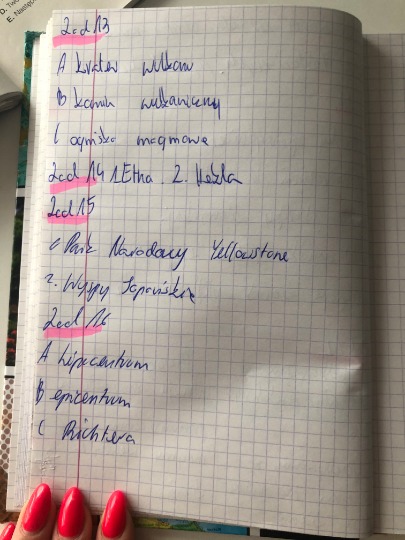 D. Two
E. Następ
Zad 13
A krater wulkanu
B komin wulkaniczny
C ognisko magmowe
Zad 14 1. Etna 2. Hekla
Zad 15
1. Park Narodowy Yellowstone
2. Wyspy Japońskie
Zad 16
A hipocentum
B epicentum
C Richtera